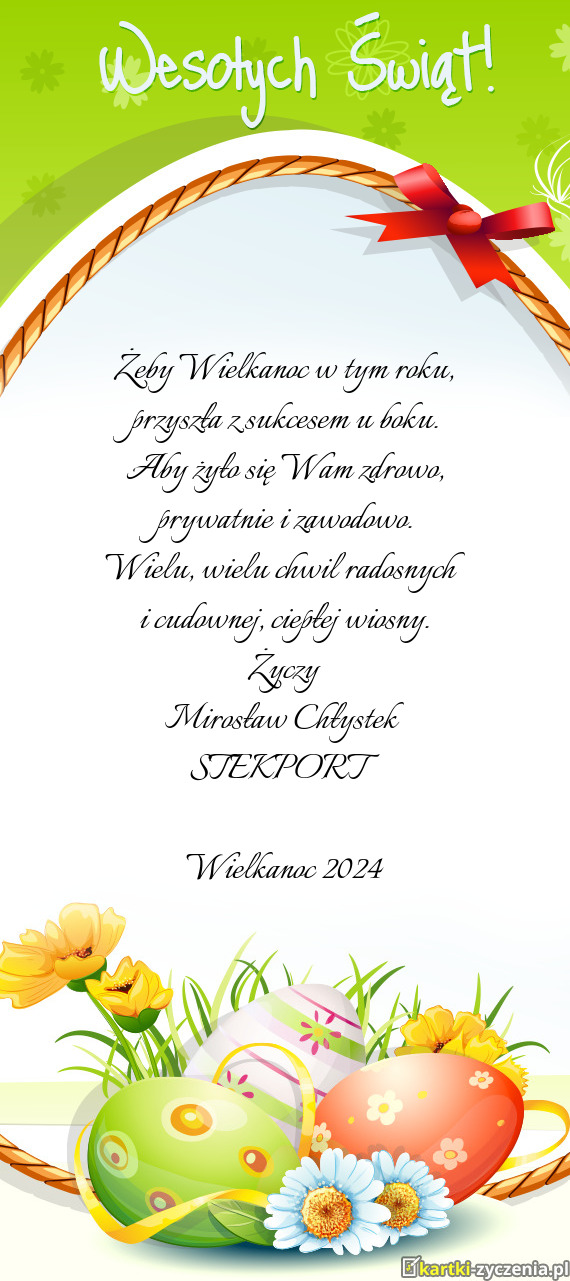 Wesołych Świąt!
Żeby Wielkanoc w tym roku,
przyszła z sukcesem u boku.
Aby żyło się Wam zdrowo,
prywatnie i zawodowo.
Wielu, wielu chwil radosnych
i cudownej, ciepłej wiosny.
Życzy
Mirosław Chłystek
STEKPORT
Wielkanoc 2024
kartki-zyczenia.pl